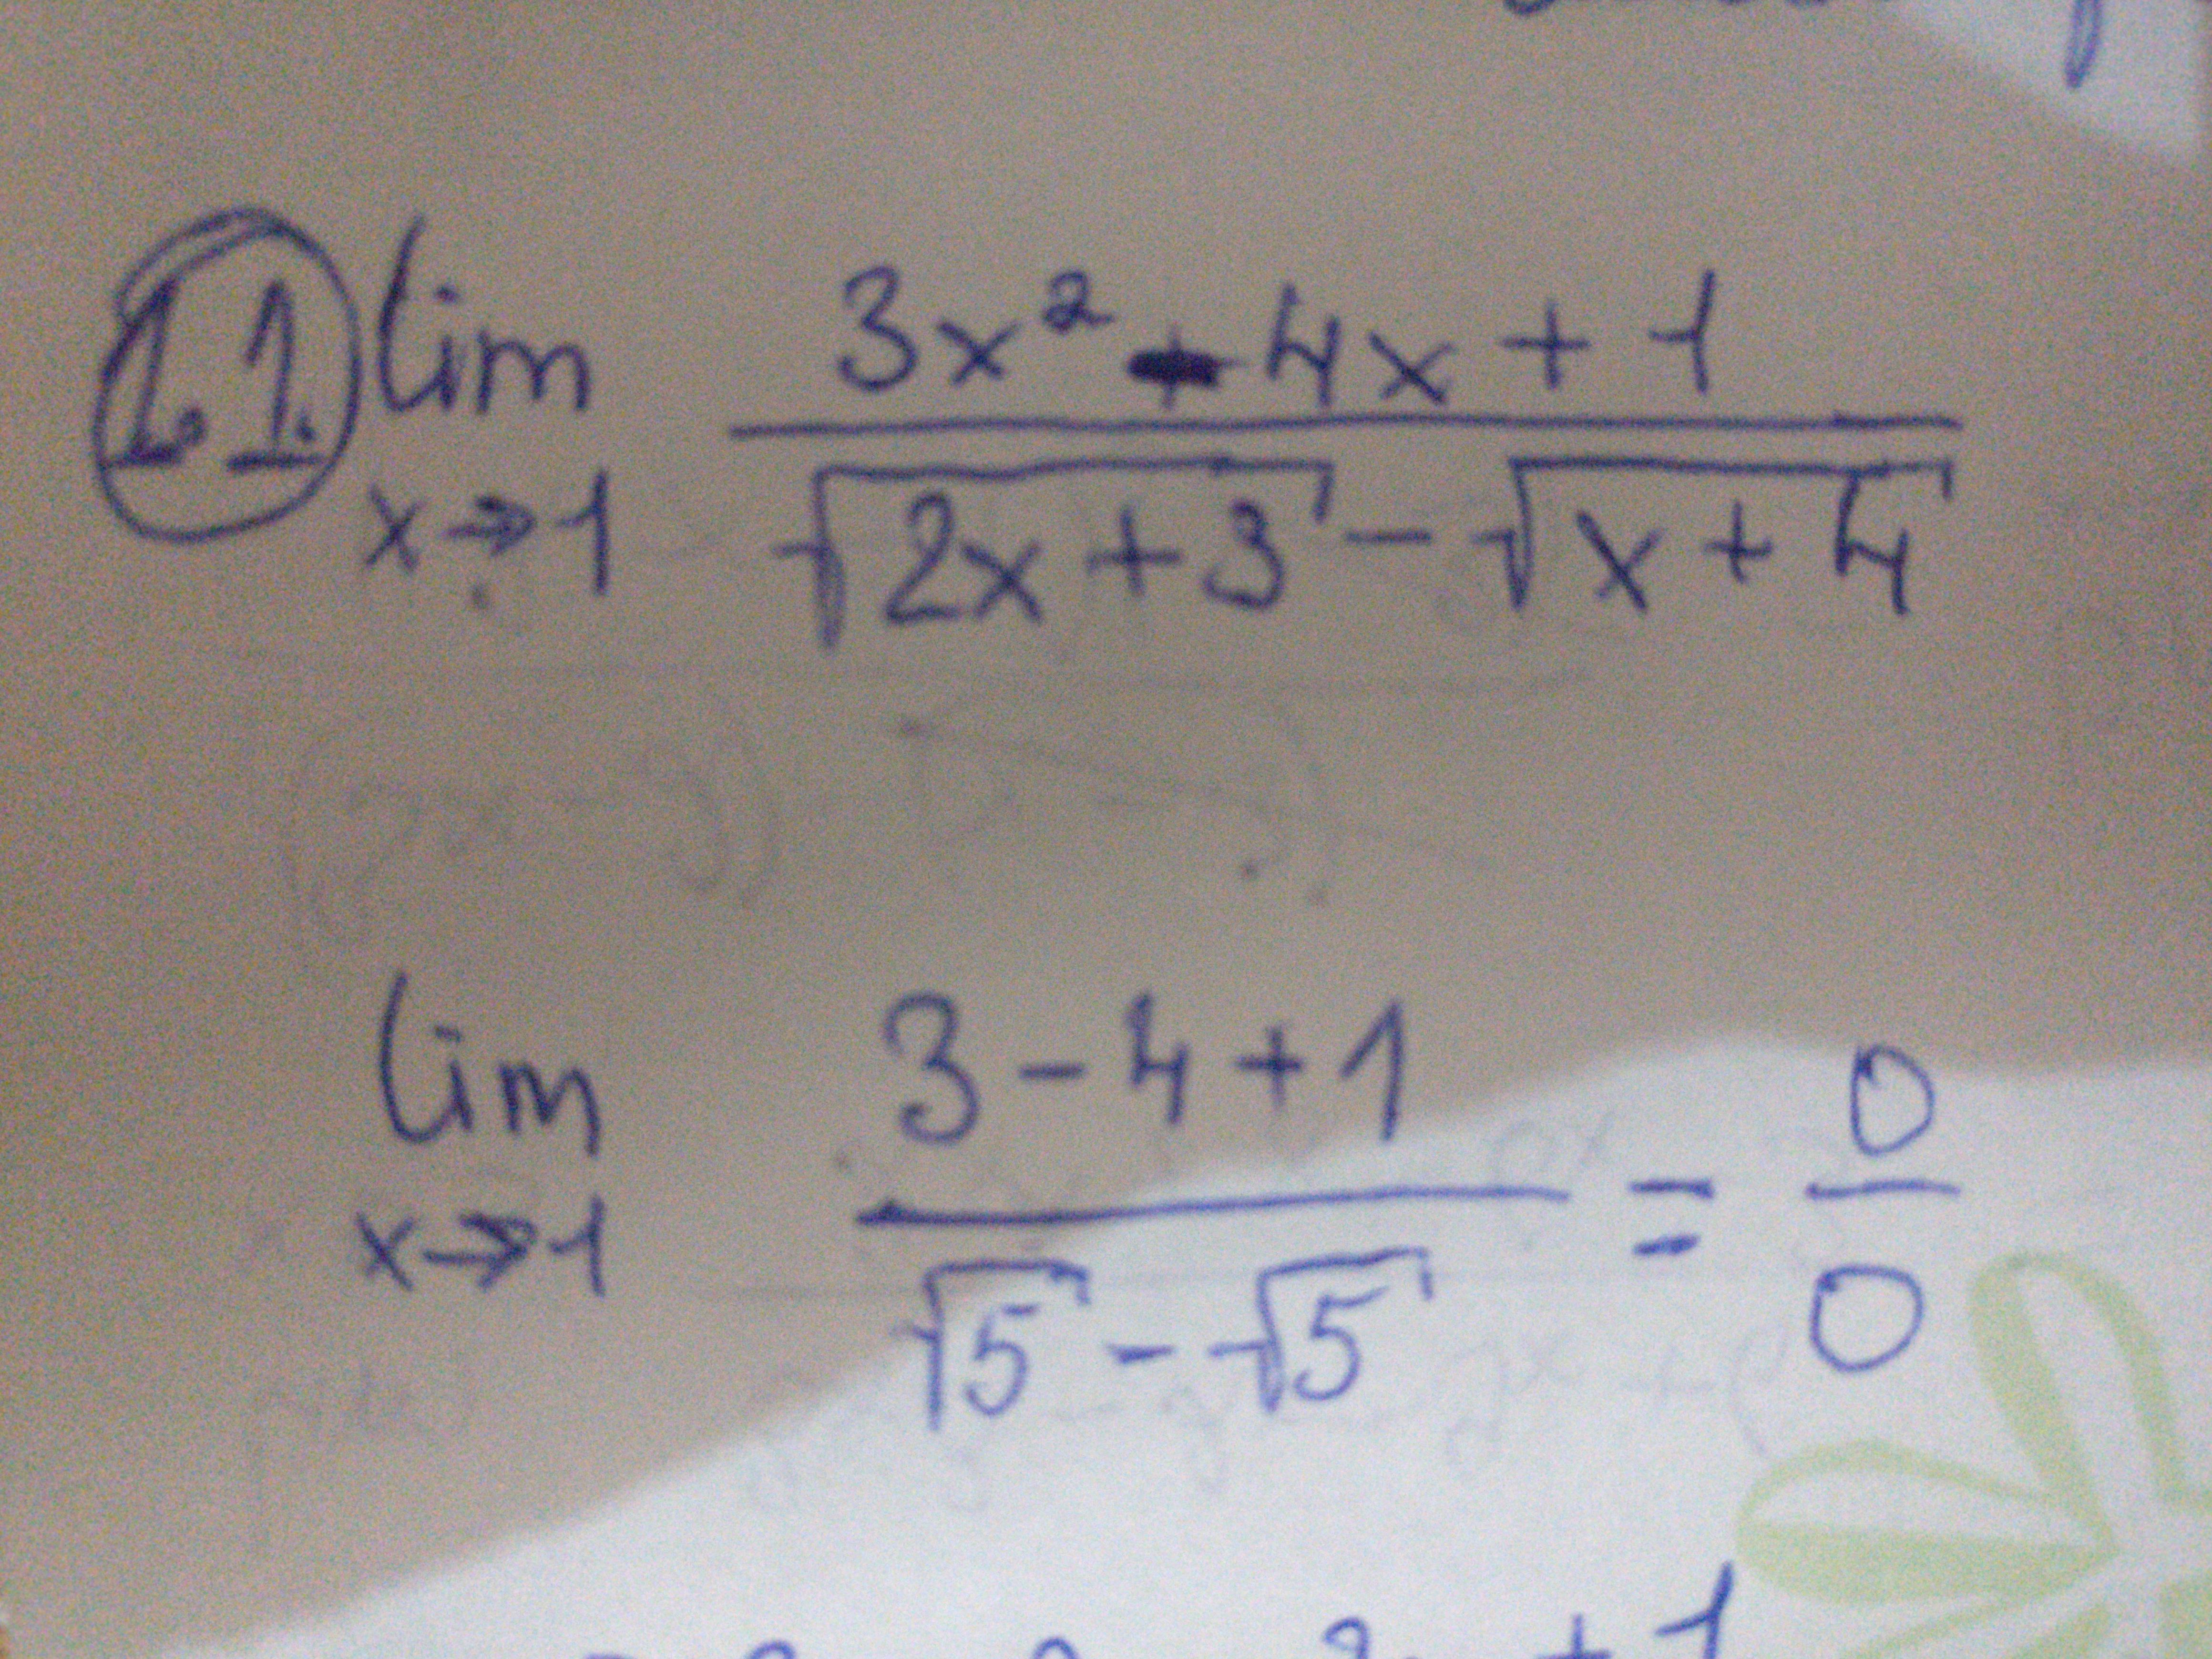 1.1. lim x→1 (3x² - 4x + 1) / (√(2x+3) - √(x+4))
lim x→1 (3-4+1) / (√5 - √5) = 0/0
+ 1